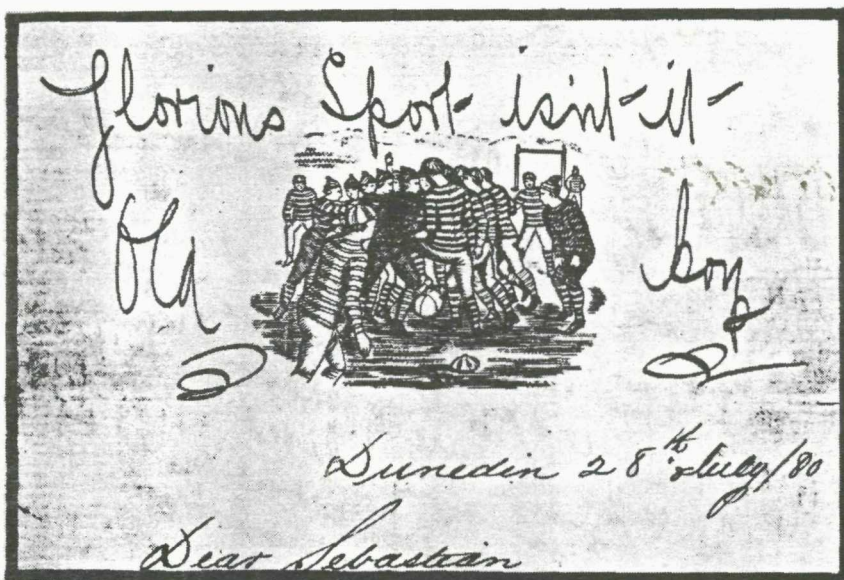 Glorious Sport isint it
Old boy
Dunedin 28th July/80
Dear Sebastian